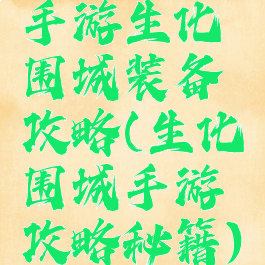 手游生化
围城装备
攻略(生化
围城手游
攻略秘籍)